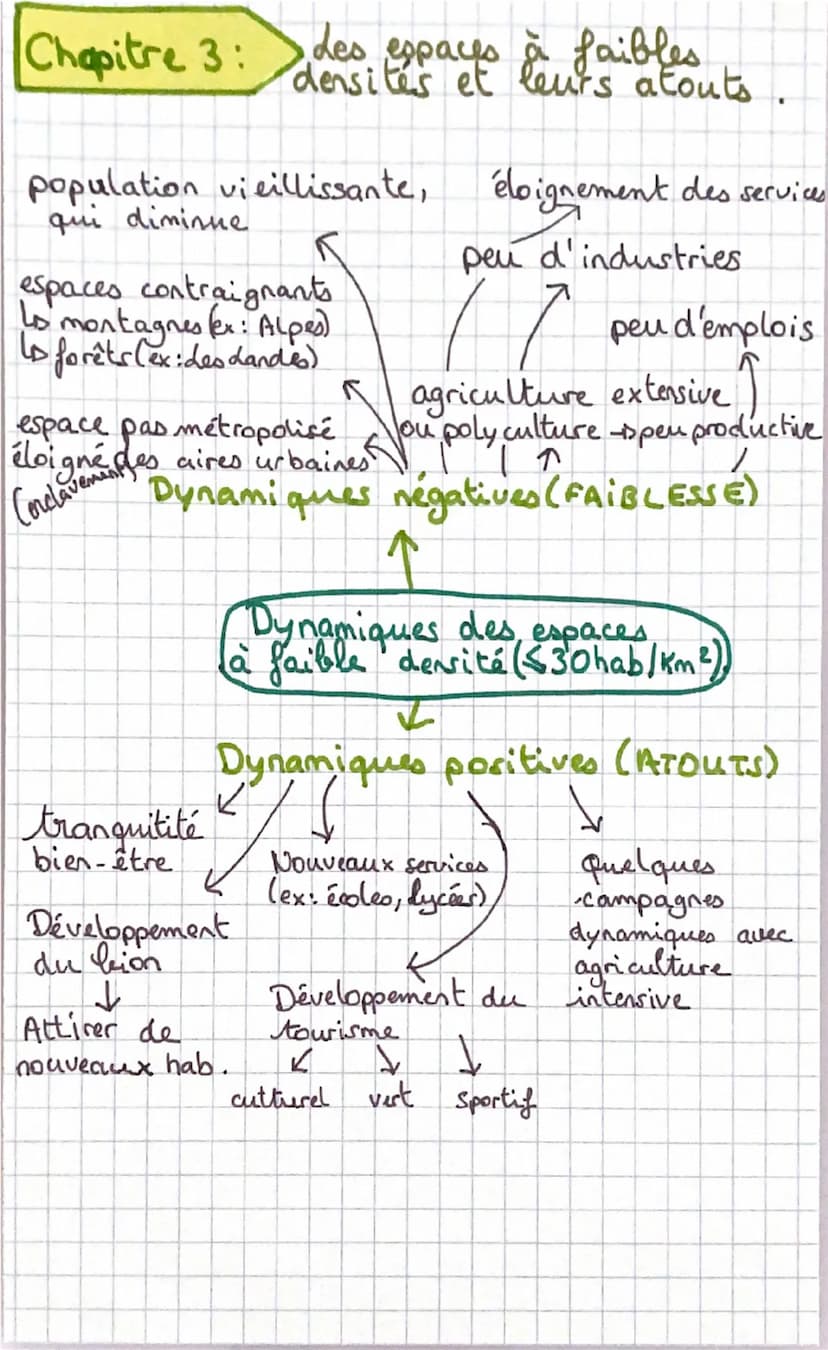 Chapitre 3 :
des espaces à faibles
densités et leurs atouts .
population vieillissante,
qui diminue
éloignement des services
peu d'industries
espaces contraignants
↳ montagnes (ex : Alpes)
↳ forêts (ex : des dandes)
peu d'emplois
agriculture extensive
ou polyculture → peu productive
espace pas métropolisé
éloigné des aires urbaines
(enclavement)
Dynamiques négatives (FAiBLESSE)
Dynamiques des espaces
à faible densité (≤30hab/Km²)
Dynamiques positives (ATOUTS)
tranquitité
bien-être
Nouveaux services
(ex: écoles, lycées)
Quelques
campagnes
dynamiques avec
agriculture
intensive
Développement
du
Attirer de
nouveaux hab.
Développement du
tourisme
culturel vert sportif